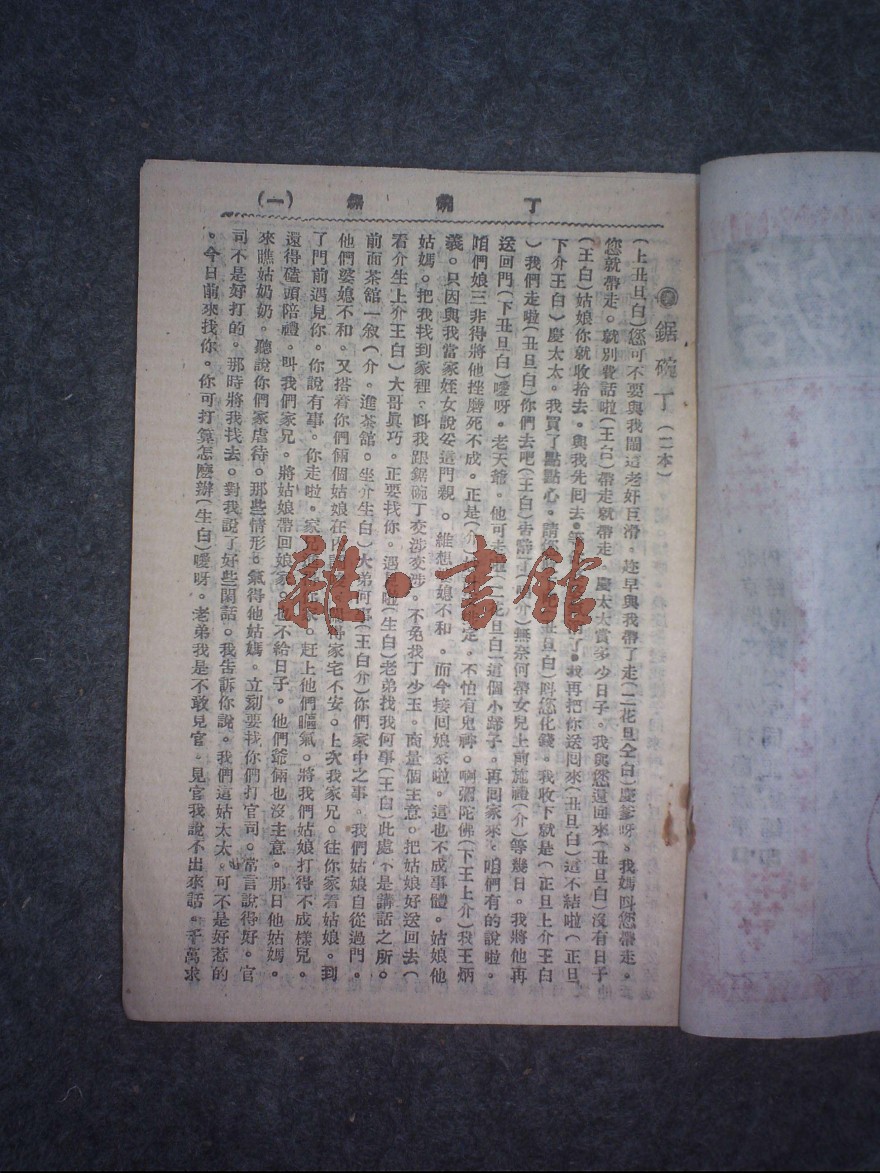 丁碗鋸（一）
鋸碗丁（二本）
（上丑旦白）您可不要與我鬧這老奸巨滑。趁早與我帶了走（二花旦仝白）慶爹呀。我媽叫您帶走。
您就帶走。就別費話啦（王白）帶走就帶走。慶太太賞多少日子。我與您送回來（丑旦白）沒有日子
（王白）姑娘你就收拾去。與我先回去。等 了。我再把你送回來（丑旦白）這不結啦（正旦
下介王白）慶太太。我買了點點心。請您 丑旦白）叫您化錢。我收下就是（正旦上介王白
）我們走啦（丑旦白）你們去吧（王白）告辭了 介）無奈何帶女兒上前施禮（介）等幾日。我將他再
送回門（下丑旦白）噯呀。老天爺。他可走 （二花旦白）這個小蹄子。再回家來。咱們有的說啦。
咱們娘三非得將他挫磨死不成。正是（介） 定。不怕有鬼神。啊彌陀佛（下王上介）我王炳
義。只因與我當家姪女說妥這門親。 維想 媳不和。而今接回娘家啦。這也不成事體。姑娘他
姑媽。把我找到家裡。叫我跟鋸碗丁交涉交涉。不免我丁少玉。商量個主意。把姑娘好送回去（
看介生上介王白）大哥眞巧。正要找你。遇 啦（生白）老弟找我何事（王白）此處不是講話之所。
前面茶舘一敘（介。進茶舘。坐介生白）大弟何事（王白介）你們家中之事。我們姑娘自從過門。
他們婆媳不和。又搭着你們倆個姑娘在內 得家宅不安。上次我家兄。往你家着姑娘。到
了門前遇見你。你說有事。你走啦。家兄 家。赶上他們嘔氣。將我們姑娘打得不成樣兒。
還得磕頭陪禮。叫我們家兄。將姑娘帶回娘家 也不給日子。他們爺倆也沒主意。那日他姑媽。
來瞧姑奶奶。聽說你們家虐待。那些情形。氣得他姑媽。立刻要找你們打官司。常言說得好。官
司不是好打的。那時將我找去。對我說了好些閑話。我告訴你說。我們這姑太太。可不是好惹的
。今日前來找你。你可打算怎麼辦（生白）噯呀。老弟我是不敢見官。見官我說不出來話。千萬求
雜·書館